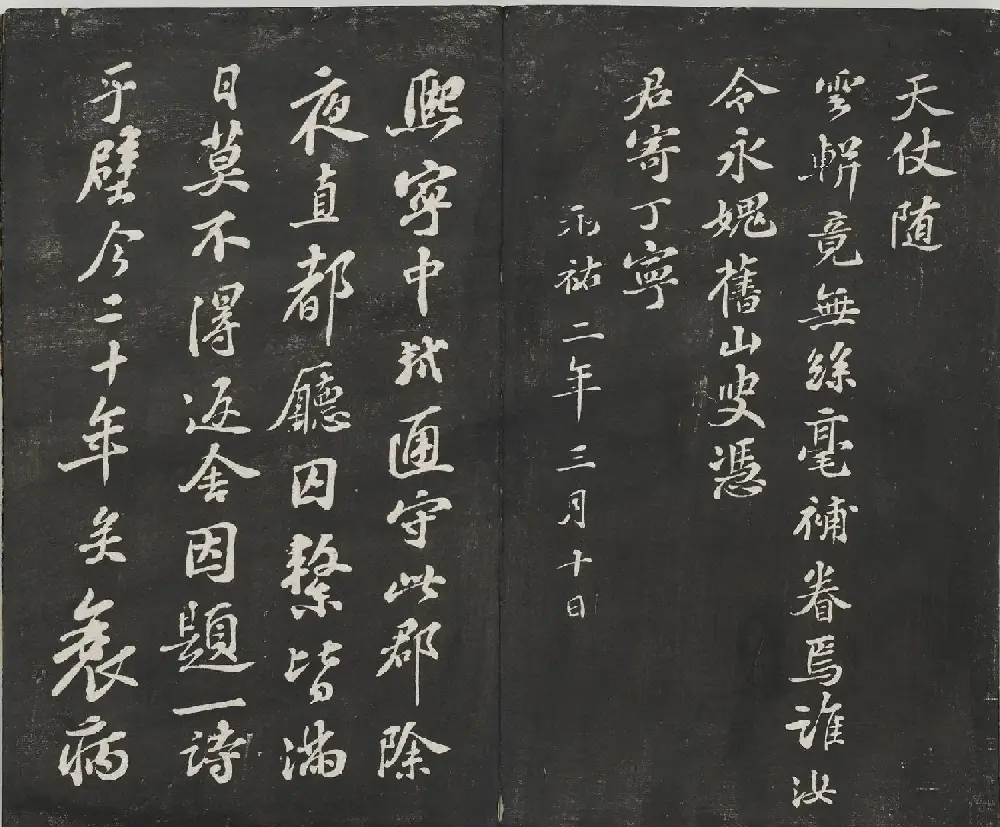 天仗随
雲軿竟無絲毫補眷焉誰汝
令永媿舊山叟憑
君寄丁寧
元祐二年三月十日
熙寧中軾通守此郡除
夜直都廳囚繫皆滿
日莫不得返舍因題一詩
于壁今二十年矣衰病